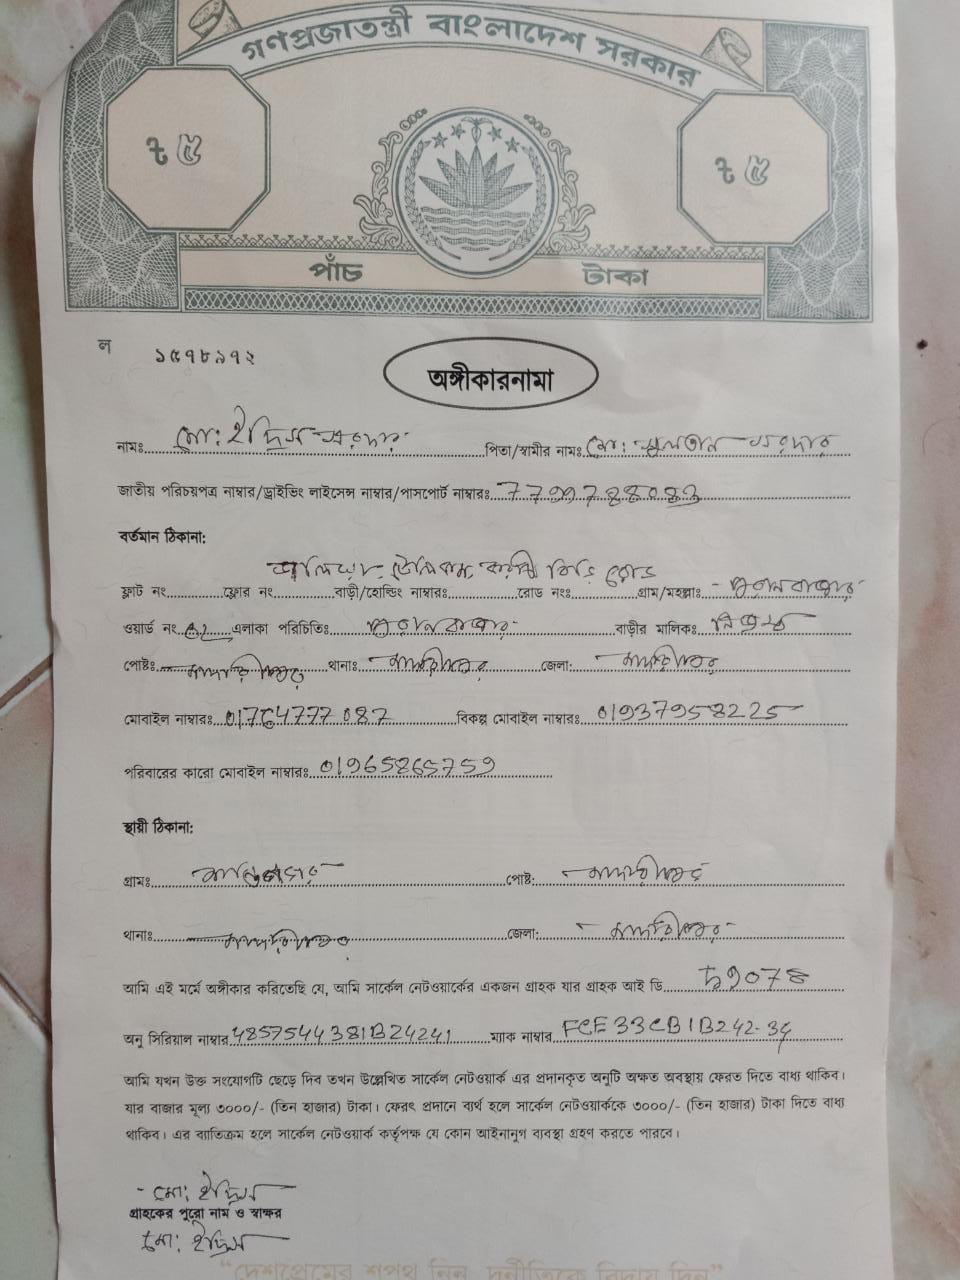 গণপ্রজাতন্ত্রী বাংলাদেশ সরকার
৳ ৫ ৳ ৫
পাঁচ টাকা
ল ১৫৭৮৯৭২
অঙ্গীকারনামা
নামঃ মো: ইদ্রিস সরদার পিতা/স্বামীর নামঃ মো: সুলতান সরদার
জাতীয় পরিচয়পত্র নাম্বার/ড্রাইভিং লাইসেন্স নাম্বার/পাসপোর্ট নাম্বারঃ
বর্তমান ঠিকানা:
রোড
ফ্লাট নং ফ্লোর নং বাড়ী/হোল্ডিং নাম্বারঃ রোড নংঃ গ্রাম/মহল্লাঃ পুরানবাজার
ওয়ার্ড নং এলাকা পরিচিতিঃ পুরানবাজার বাড়ীর মালিকঃ
পোষ্টঃ মাদারীপুর থানাঃ মাদারীপুর জেলা: মাদারীপুর
মোবাইল নাম্বারঃ 01764777087 বিকল্প মোবাইল নাম্বারঃ 01937958225
পরিবারের কারো মোবাইল নাম্বারঃ 01965265759
স্থায়ী ঠিকানা:
গ্রামঃ পোষ্ট: মাদারীপুর
থানাঃ মাদারীপুর জেলা: মাদারীপুর
আমি এই মর্মে অঙ্গীকার করিতেছি যে, আমি সার্কেল নেটওয়ার্কের একজন গ্রাহক যার গ্রাহক আই ডি
অনু সিরিয়াল নাম্বার 4857544381B24241 ম্যাক নাম্বার FCE33CB1B242-34
আমি যখন উক্ত সংযোগটি ছেড়ে দিব তখন উল্লেখিত সার্কেল নেটওয়ার্ক এর প্রদানকৃত অনুটি অক্ষত অবস্থায় ফেরত দিতে বাধ্য থাকিব।
যার বাজার মূল্য ৩০০০/- (তিন হাজার) টাকা। ফেরৎ প্রদানে ব্যর্থ হলে সার্কেল নেটওয়ার্ককে ৩০০০/- (তিন হাজার) টাকা দিতে বাধ্য
থাকিব। এর ব্যতিক্রম হলে সার্কেল নেটওয়ার্ক কর্তৃপক্ষ যে কোন আইনানুগ ব্যবস্থা গ্রহণ করতে পারবে।
মো: ইদ্রিস
গ্রাহকের পুরো নাম ও স্বাক্ষর
মো: ইদ্রিস
“দেশপ্রেমের শপথ নিন, দুর্নীতিকে বিদায় দিন”